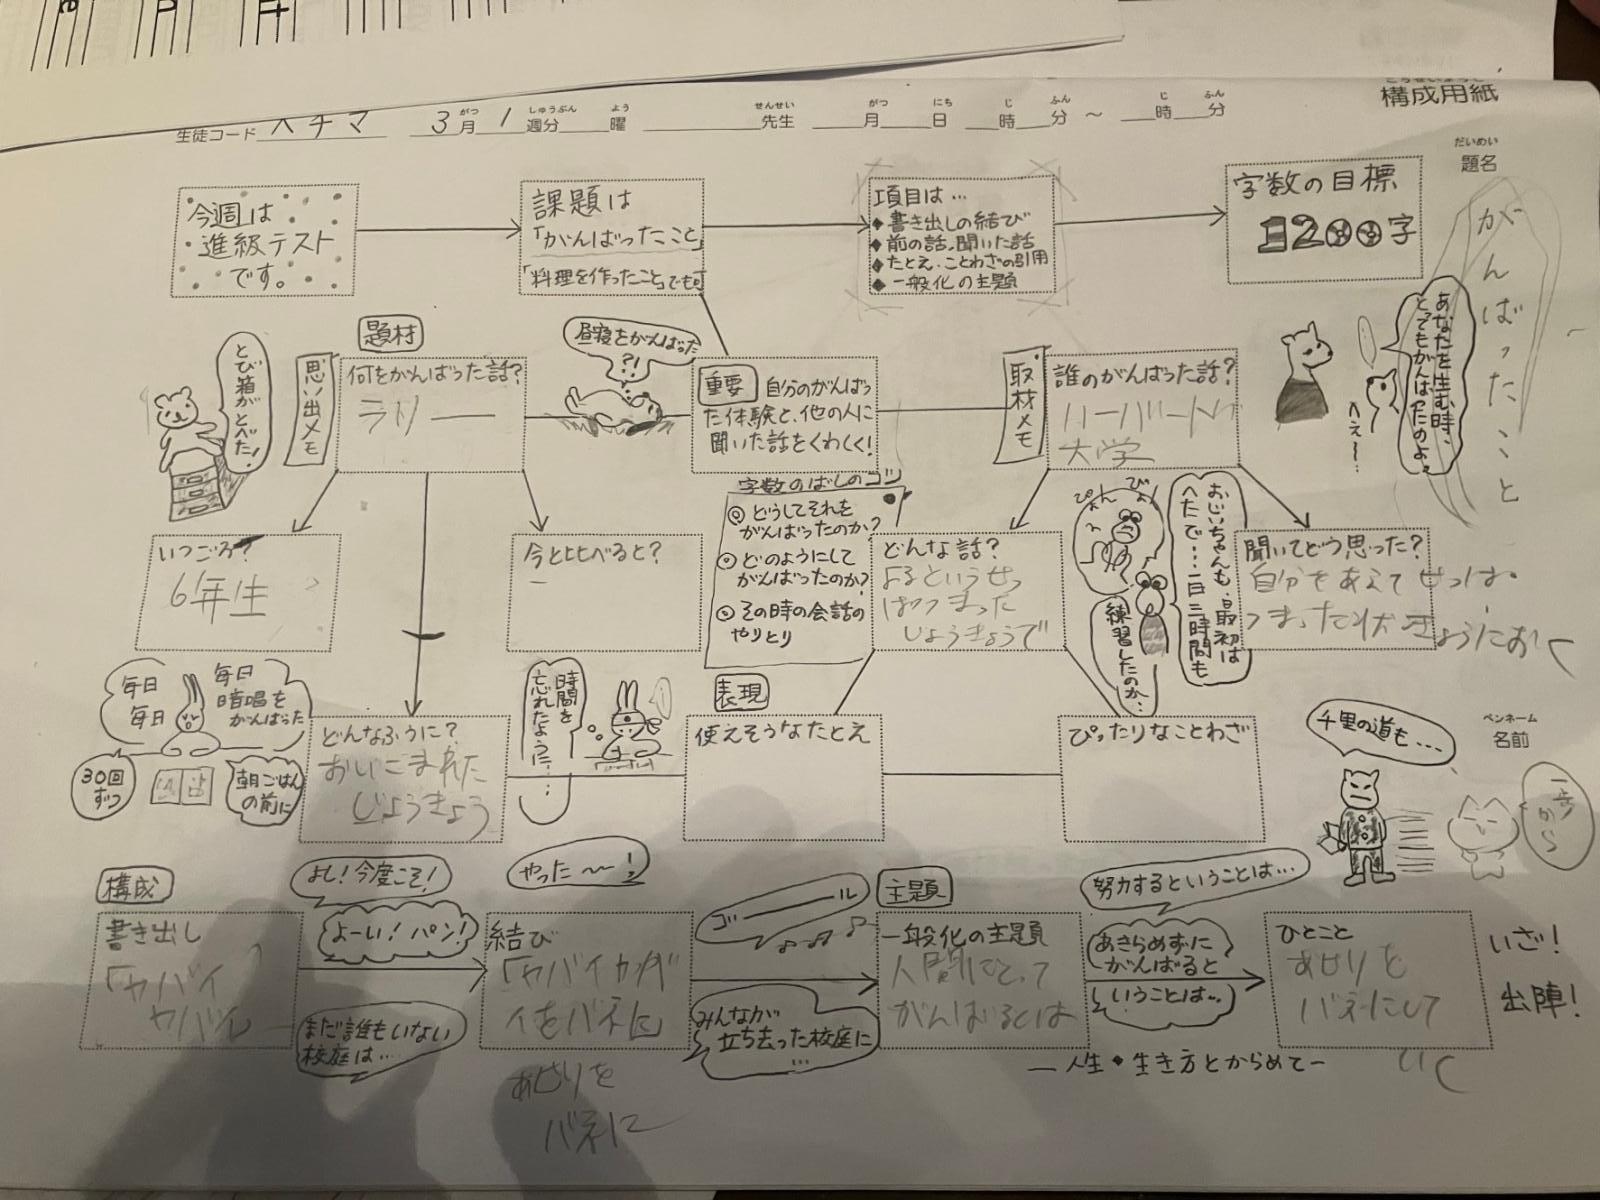 構成用紙
生徒コード ヘチマ 3月 1週分 曜 先生 月 日 時 分 〜 時 分
題名
がんばったこと
今週は
進級テスト
です。
課題は
「がんばったこと」
「料理を作ったこと」でも可
項目は…
◆書き出しの結び
◆前の話、聞いた話
◆たとえ・ことわざの引用
◆一般化の主題
字数の目標
1200字
とび箱がとべた!
思い出メモ
題材
何をがんばった話?
ラリー
昼寝をがんばった
?!
重要 自分のがんばっ
た体験と、他の人に
聞いた話をくわしく!
取材メモ
誰のがんばった話?
ハーバード
大学
あなたを生む時、
とってもがんばったのよ。
へぇ〜…
いつごろ?
6年生
今と比べると?
字数のばしのコツ
◎どうしてそれを
がんばったのか?
◎どのようにして
がんばったのか?
◎その時の会話の
やりとり
どんな話?
よるというせっ
ぱつまった
じょうきょうで
ぴょん
ぴょん
おじいちゃんも、最初は
へたで…一日三時間も
練習したのか…
聞いてどう思った?
自分をあえてせっぱ
つまった状きょうにおく
毎日
毎日
毎日
暗唱を
がんばった
30回
ずつ
朝ごはん
の前に
どんなふうに?
おいこまれた
じょうきょう
時間を
忘れたように…
表現
使えそうなたとえ
ぴったりなことわざ
ペンネーム
名前
千里の道も…
一歩から
構成
書き出し
「ヤバイ
ヤバイ
よし!今度こそ!
よーい!パン!
まだ誰もいない
校庭は…
やった〜!
結び
「ヤバイヤバ
イをバネに
あせりを
バネに
ゴール
みんなが
立ち去った校庭に
…
主題
一般化の主題
人間にとって
がんばるとは
努力するということは…
あきらめずに
がんばると
いうことは…
ひとこと
あせりを
バネにして
いく
ー人生・生き方とからめてー
いざ!
出陣!